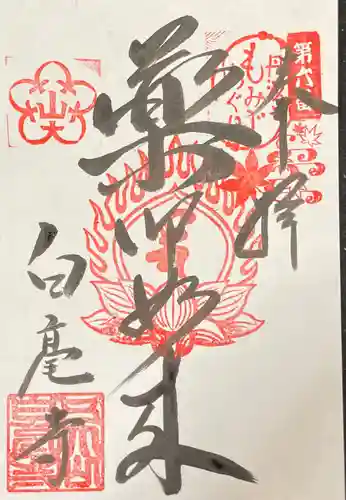 奉拝
第六番
丹波
もみじ
めぐり
薬師如来
白毫寺